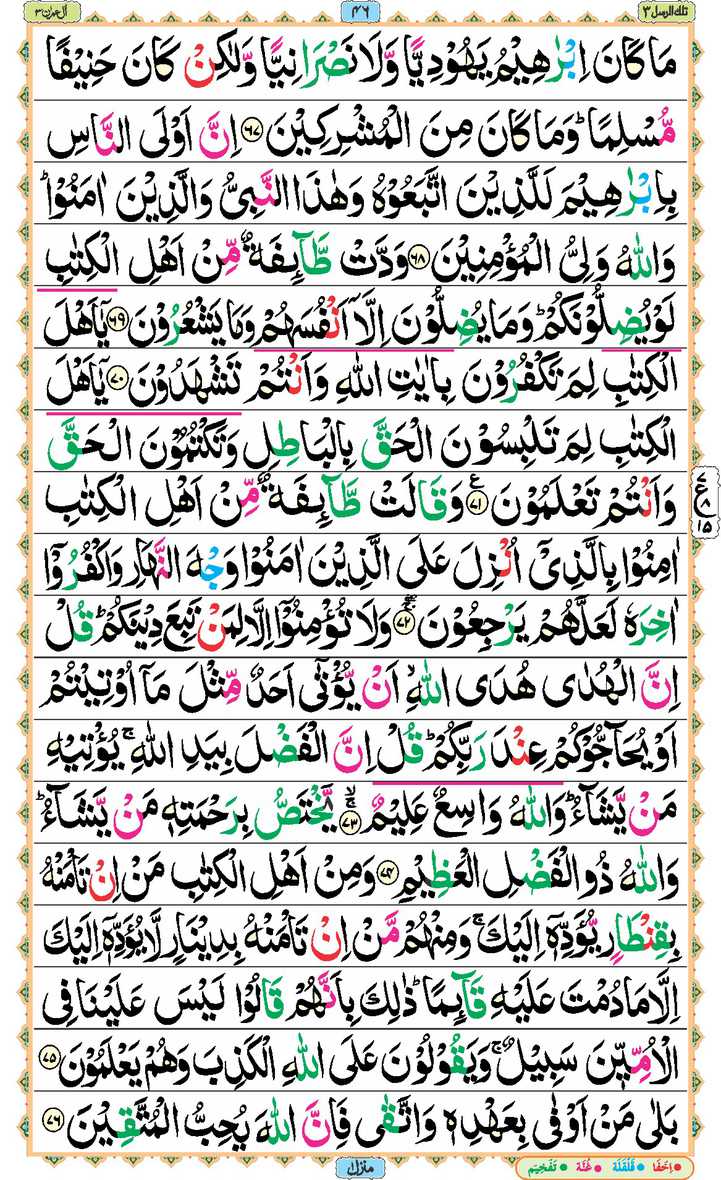 تلك الرسل ٣
٤٦
اٰل عمرٰن ٣
مَا كَانَ اِبْرٰهِيْمُ يَهُوْدِيًّا وَّلَا نَصْرَانِيًّا وَّلٰكِنْ كَانَ حَنِيْفًا
مُّسْلِمًا ؕ وَمَا كَانَ مِنَ الْمُشْرِكِيْنَ ﴿۶۷﴾ اِنَّ اَوْلَى النَّاسِ
بِاِبْرٰهِيْمَ لَلَّذِيْنَ اتَّبَعُوْهُ وَهٰذَا النَّبِىُّ وَالَّذِيْنَ اٰمَنُوْا ؕ
وَاللّٰهُ وَلِىُّ الْمُؤْمِنِيْنَ ﴿۶۸﴾ وَدَّتْ طَّآئِفَةٌ مِّنْ اَهْلِ الْكِتٰبِ
لَوْ يُضِلُّوْنَكُمْ ؕ وَمَا يُضِلُّوْنَ اِلَّاۤ اَنْفُسَهُمْ وَمَا يَشْعُرُوْنَ ﴿۶۹﴾ يٰۤاَهْلَ
الْكِتٰبِ لِمَ تَكْفُرُوْنَ بِاٰيٰتِ اللّٰهِ وَاَنْتُمْ تَشْهَدُوْنَ ﴿۷۰﴾ يٰۤاَهْلَ
الْكِتٰبِ لِمَ تَلْبِسُوْنَ الْحَقَّ بِالْبَاطِلِ وَتَكْتُمُوْنَ الْحَقَّ
وَاَنْتُمْ تَعْلَمُوْنَ ﴿۷۱﴾ ع وَقَالَتْ طَّآئِفَةٌ مِّنْ اَهْلِ الْكِتٰبِ
٧ ع ٨ ١٥
اٰمِنُوْا بِالَّذِىْۤ اُنْزِلَ عَلَى الَّذِيْنَ اٰمَنُوْا وَجْهَ النَّهَارِ وَاكْفُرُوْۤا
اٰخِرَهٗ لَعَلَّهُمْ يَرْجِعُوْنَ ﴿۷۲﴾ وَلَا تُؤْمِنُوْۤا اِلَّا لِمَنْ تَبِعَ دِيْنَكُمْ ؕ قُلْ
اِنَّ الْهُدٰى هُدَى اللّٰهِ ۙ اَنْ يُّؤْتٰٓى اَحَدٌ مِّثْلَ مَاۤ اُوْتِيْتُمْ
اَوْ يُحَآجُّوْكُمْ عِنْدَ رَبِّكُمْ ؕ قُلْ اِنَّ الْفَضْلَ بِيَدِ اللّٰهِ ۚ يُؤْتِيْهِ
مَنْ يَّشَآءُ ؕ وَاللّٰهُ وَاسِعٌ عَلِيْمٌ ﴿۷۳﴾ يَّخْتَصُّ بِرَحْمَتِهٖ مَنْ يَّشَآءُ ؕ
وَاللّٰهُ ذُو الْفَضْلِ الْعَظِيْمِ ﴿۷۴﴾ وَمِنْ اَهْلِ الْكِتٰبِ مَنْ اِنْ تَاْمَنْهُ
بِقِنْطَارٍ يُّؤَدِّهٖۤ اِلَيْكَ ۚ وَمِنْهُمْ مَّنْ اِنْ تَاْمَنْهُ بِدِيْنَارٍ لَّا يُؤَدِّهٖۤ اِلَيْكَ
اِلَّا مَا دُمْتَ عَلَيْهِ قَآئِمًا ؕ ذٰلِكَ بِاَنَّهُمْ قَالُوْا لَيْسَ عَلَيْنَا فِى
الْاُمِّيّٖنَ سَبِيْلٌ ۚ وَيَقُوْلُوْنَ عَلَى اللّٰهِ الْكَذِبَ وَهُمْ يَعْلَمُوْنَ ﴿۷۵﴾
بَلٰى مَنْ اَوْفٰى بِعَهْدِهٖ وَاتَّقٰى فَاِنَّ اللّٰهَ يُحِبُّ الْمُتَّقِيْنَ ﴿۷۶﴾
منزل ١
اِخْفَا قَلْقَلَهْ غُنَّهْ تَفْخِيْم